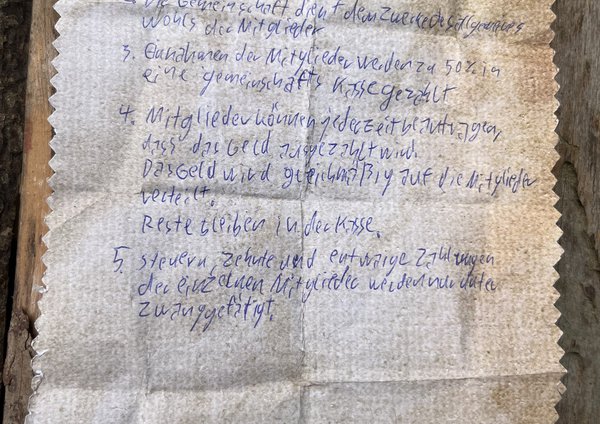 2. Die Gemeinschaft dient dem Zwecke des allgemeinen
Wohls der Mitglieder
3. Einnahmen der Mitglieder werden zu 50% in
eine gemeinschafts Kasse gezahlt
4. Mitglieder können jederzeit beantragen,
dass das Geld ausgezahlt wird.
Das Geld wird gleichmäßig auf die Mitglieder
verteilt.
Reste bleiben in der Kasse.
5. Steuern, Zehnte und etwaige Zahlungen
der einzelnen Mitglieder werden nur unter
Zwang getätigt.